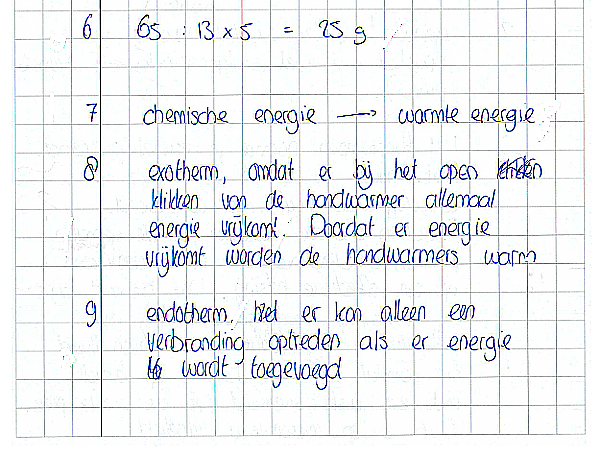 6 65 : 13 x 5 = 25 g
7 chemische energie → warmte energie
8 exotherm, omdat er bij het open
klikken van de handwarmer allemaal
energie vrijkomt. Doordat er energie
vrijkomt worden de handwarmers warm
9 endotherm, het er kan alleen een
verbranding optreden als er energie
wordt toegevoegd